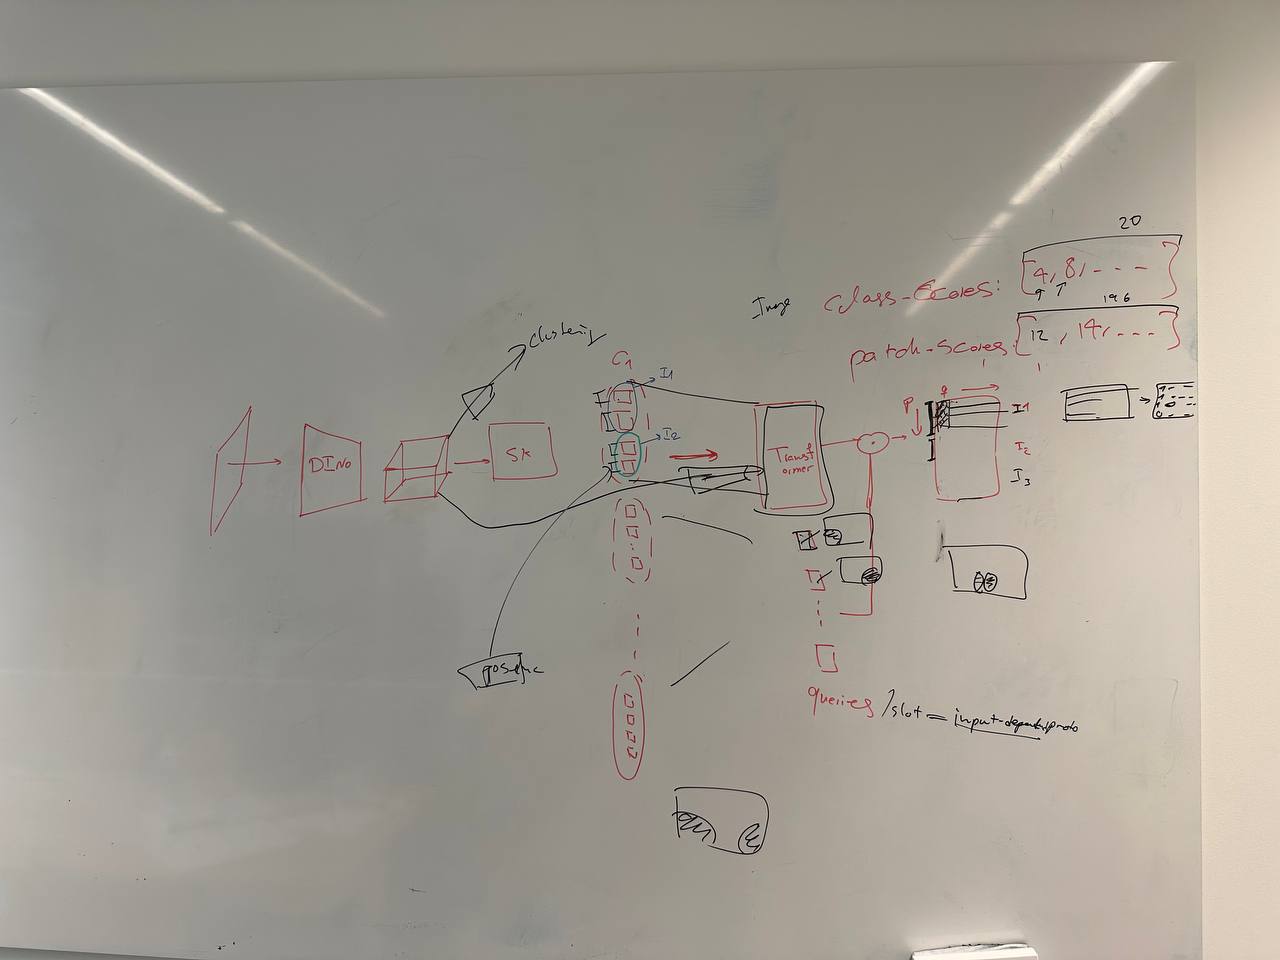 20
Image class-scores: [4, 8, - - - ]
196
patch-scores [12, 14, ....]
clustering
C1
I1
DINO
SK
I2
Transf
ormer
P
q
I1
I2
I3
queries /slot = input-depend proto